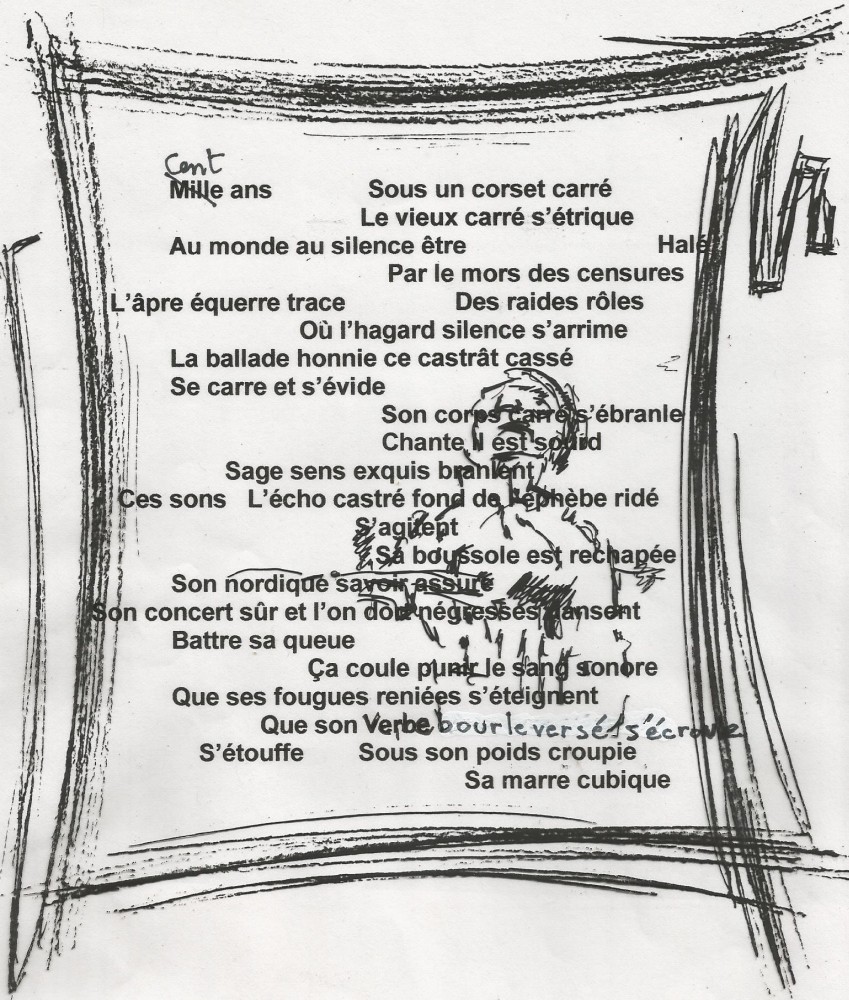 Cent
Mille ans Sous un corset carré
Le vieux carré s’étrique
Au monde au silence être Halé
Par le mors des censures
L’âpre équerre trace Des raides rôles
Où l’hagard silence s’arrime
La ballade honnie ce castrât cassé
Se carre et s’évide
Son corps carré s’ébranle
Chante il est sourd
Sage sens exquis branlent
Ces sons L’écho castré fond de l’éphèbe ridé
S’agitent
Sa boussole est rechapée
Son nordique savoir assuré
Son concert sûr et l’on dort négresses dansent
Battre sa queue
Ça coule punir le sang sonore
Que ses fougues reniées s’éteignent
Que son Verbe bourleversé s’écroule
S’étouffe Sous son poids croupie
Sa marre cubique